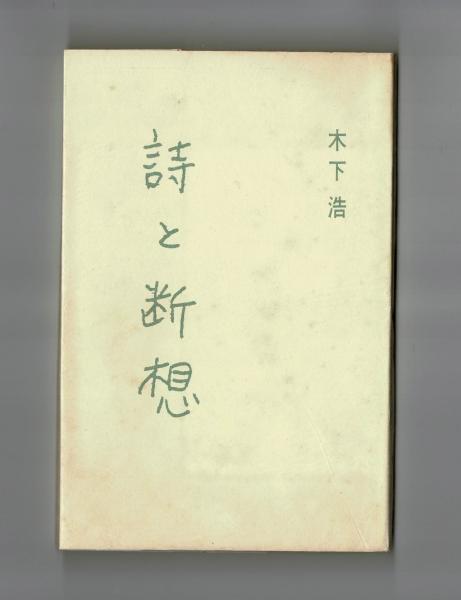 木下浩
詩と断想